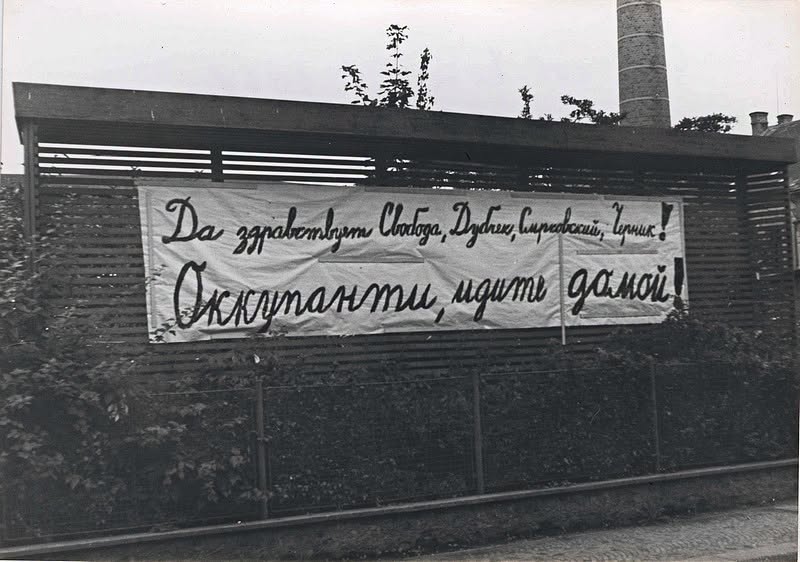 Да здравствует Свобода, Дубчек, Смрковский, Черник!
Оккупанти, идите домой!